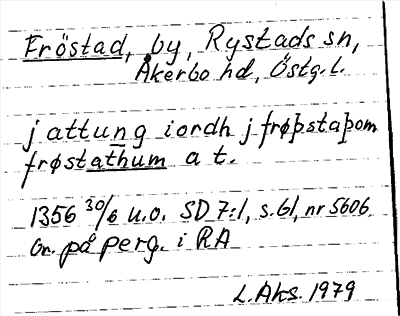 Fröstad, by, Rystads sn,
Åkerbo hd, Östg. l.
j attung iordh j frøþstaþom
frøstathum a t.
1356 30/6 u.o. SD 7:1, s. 61, nr 5606.
Or. på perg. i RA
L. Aks. 1979